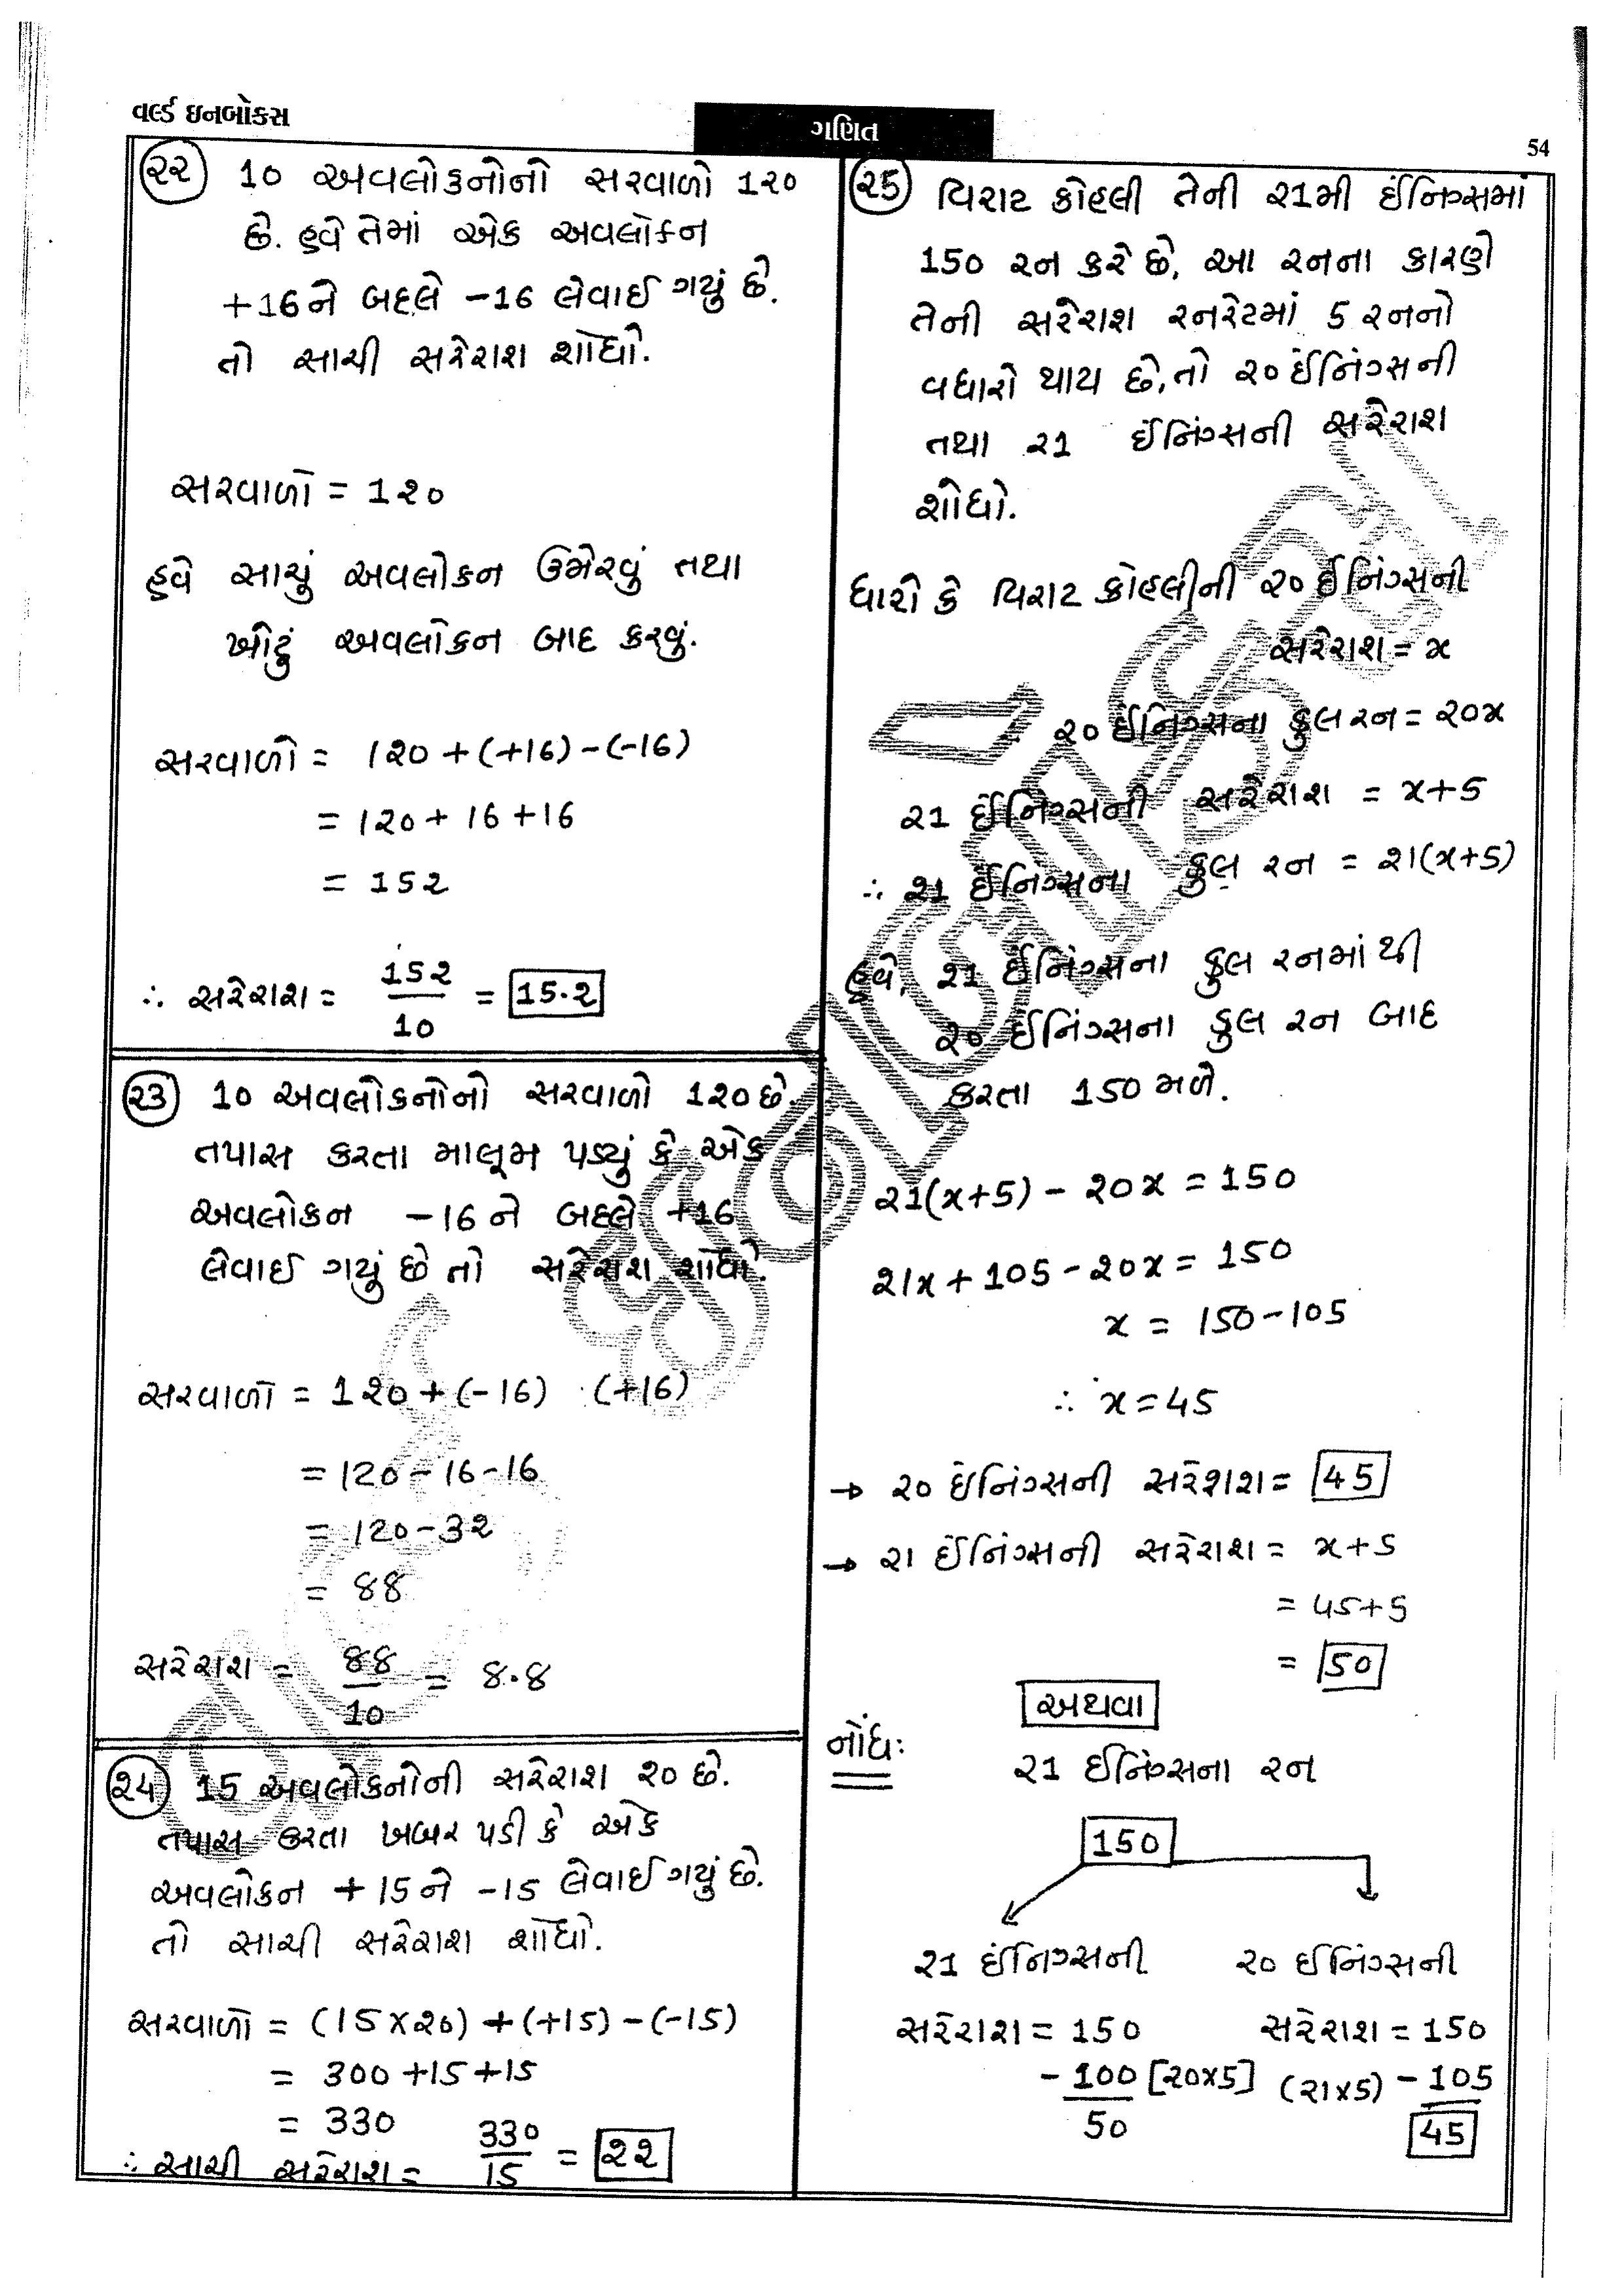 વર્લ્ડ ઇનબોકસ
ગણિત
54
(૨૨) 10 અવલોકનોનો સરવાળો 1૨૦
છે. હવે તેમાં એક અવલોકન
+16ને બદલે -16 લેવાઈ ગયું છે.
તો સાચી સરેરાશ શોધો.
સરવાળો = 1૨૦
હવે સાચું અવલોકન ઉમેરવું તથા
ખોટું અવલોકન બાદ કરવું.
સરવાળો = 1૨૦ + (+16) - (-16)
= 1૨૦ + 16 + 16
= 15૨
∴ સરેરાશ = 15૨/10 = 15.૨
(૨3) 10 અવલોકનોનો સરવાળો 1૨૦ છે.
તપાસ કરતા માલૂમ પડ્યું કે એક
અવલોકન -16 ને બદલે +16
લેવાઈ ગયું છે તો સરેરાશ શોધો.
સરવાળો = 1૨૦ + (-16) (+16)
= 1૨૦ - 16 - 16
= 1૨૦ - 3૨
= 88
સરેરાશ = 88/10 = 8.8
(૨4) 15 અવલોકનોની સરેરાશ ૨૦ છે.
તપાસ કરતા ખબર પડી કે એક
અવલોકન +15 ને -15 લેવાઈ ગયું છે.
તો સાચી સરેરાશ શોધો.
સરવાળો = (15 x ૨૦) + (+15) - (-15)
= 300 + 15 + 15
= 330
∴ સાચી સરેરાશ = 330/15 = ૨૨
(૨5) વિરાટ કોહલી તેની ૨1મી ઈનિંગ્સમાં
150 રન કરે છે, આ રનના કારણે
તેની સરેરાશ રનરેટમાં 5 રનનો
વધારો થાય છે, તો ૨૦ ઈનિંગ્સની
તથા ૨1 ઈનિંગ્સની સરેરાશ
શોધો.
ધારો કે વિરાટ કોહલીની ૨૦ ઈનિંગ્સની
સરેરાશ = x
૨૦ ઈનિંગ્સના કુલ રન = ૨૦x
૨1 ઈનિંગ્સની સરેરાશ = x+5
∴ ૨1 ઈનિંગ્સના કુલ રન = ૨1(x+5)
હવે, ૨1 ઈનિંગ્સના કુલ રનમાંથી
૨૦ ઈનિંગ્સના કુલ રન બાદ
કરતા 150 મળે.
૨1(x+5) - ૨૦x = 150
૨1x + 105 - ૨૦x = 150
x = 150 - 105
∴ x = 45
→ ૨૦ ઈનિંગ્સની સરેરાશ = 45
→ ૨1 ઈનિંગ્સની સરેરાશ = x+5
= 45+5
= 50
અથવા
નોંધ:
૨1 ઈનિંગ્સના રન
150
૨1 ઈનિંગ્સની ૨૦ ઈનિંગ્સની
સરેરાશ = 150 સરેરાશ = 150
- 100 [૨૦x5] (૨1x5) - 105
50 45